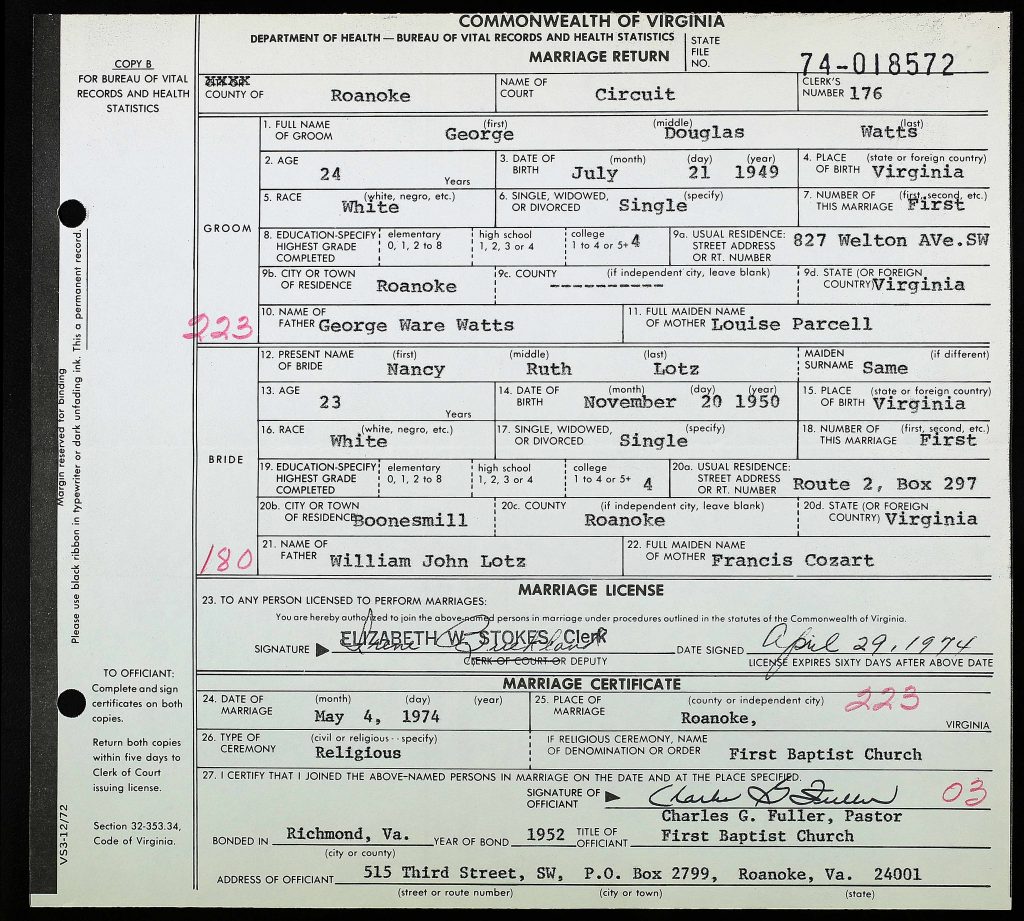 COMMONWEALTH OF VIRGINIA
DEPARTMENT OF HEALTH — BUREAU OF VITAL RECORDS AND HEALTH STATISTICS
MARRIAGE RETURN
STATE FILE NO. 74-018572
COPY B
FOR BUREAU OF VITAL
RECORDS AND HEALTH
STATISTICS
COUNTY OF Roanoke
NAME OF COURT Circuit
CLERK'S NUMBER 176
GROOM
1. FULL NAME OF GROOM (first) George (middle) Douglas (last) Watts
2. AGE 24 Years
3. DATE OF BIRTH (month) July (day) 21 (year) 1949
4. PLACE OF BIRTH (state or foreign country) Virginia
5. RACE (white, negro, etc.) White
6. SINGLE, WIDOWED, OR DIVORCED (specify) Single
7. NUMBER OF THIS MARRIAGE (first, second, etc.) First
8. EDUCATION-SPECIFY HIGHEST GRADE COMPLETED elementary 0, 1, 2 to 8 high school 1, 2, 3 or 4 college 1 to 4 or 5+ 4
9a. USUAL RESIDENCE: STREET ADDRESS OR RT. NUMBER 827 Welton AVe.SW
9b. CITY OR TOWN OF RESIDENCE Roanoke
9c. COUNTY (if independent city, leave blank) ----------
9d. STATE (OR FOREIGN COUNTRY) Virginia
223
10. NAME OF FATHER George Ware Watts
11. FULL MAIDEN NAME OF MOTHER Louise Parcell
BRIDE
12. PRESENT NAME OF BRIDE (first) Nancy (middle) Ruth (last) Lotz
MAIDEN SURNAME (if different) Same
13. AGE 23 Years
14. DATE OF BIRTH (month) November (day) 20 (year) 1950
15. PLACE OF BIRTH (state or foreign country) Virginia
16. RACE (white, negro, etc.) White
17. SINGLE, WIDOWED, OR DIVORCED (specify) Single
18. NUMBER OF THIS MARRIAGE (first, second, etc.) First
19. EDUCATION-SPECIFY HIGHEST GRADE COMPLETED elementary 0, 1, 2 to 8 high school 1, 2, 3 or 4 college 1 to 4 or 5+ 4
20a. USUAL RESIDENCE: STREET ADDRESS OR RT. NUMBER Route 2, Box 297
20b. CITY OR TOWN OF RESIDENCE Boonesmill
20c. COUNTY (if independent city, leave blank) Roanoke
20d. STATE (OR FOREIGN COUNTRY) Virginia
180
21. NAME OF FATHER William John Lotz
22. FULL MAIDEN NAME OF MOTHER Francis Cozart
Margin reserved for binding
Please use black ribbon in typewriter or dark unfading ink. This a permanent record.
MARRIAGE LICENSE
23. TO ANY PERSON LICENSED TO PERFORM MARRIAGES:
You are hereby authorized to join the above-named persons in marriage under procedures outlined in the statutes of the Commonwealth of Virginia.
ELIZABETH W. STOKES, Clerk
SIGNATURE Irene
CLERK OF COURT OR DEPUTY
DATE SIGNED April 29, 1974
LICENSE EXPIRES SIXTY DAYS AFTER ABOVE DATE
TO OFFICIANT:
Complete and sign
certificates on both
copies.
Return both copies
within five days to
Clerk of Court
issuing license.
Section 32-353.34,
Code of Virginia.
VS3-12/72
MARRIAGE CERTIFICATE
24. DATE OF MARRIAGE (month) (day) (year) May 4, 1974
25. PLACE OF MARRIAGE (county or independent city) Roanoke, VIRGINIA
223
26. TYPE OF CEREMONY (civil or religious - - specify) Religious
IF RELIGIOUS CEREMONY, NAME OF DENOMINATION OR ORDER First Baptist Church
27. I CERTIFY THAT I JOINED THE ABOVE-NAMED PERSONS IN MARRIAGE ON THE DATE AND AT THE PLACE SPECIFIED.
SIGNATURE OF OFFICIANT Charles G. Fuller
03
Charles G. Fuller, Pastor
BONDED IN Richmond, Va. (city or county) YEAR OF BOND 1952 TITLE OF OFFICIANT First Baptist Church
ADDRESS OF OFFICIANT 515 Third Street, SW, P.O. Box 2799, Roanoke, Va. 24001
(street or route number) (city or town) (state)